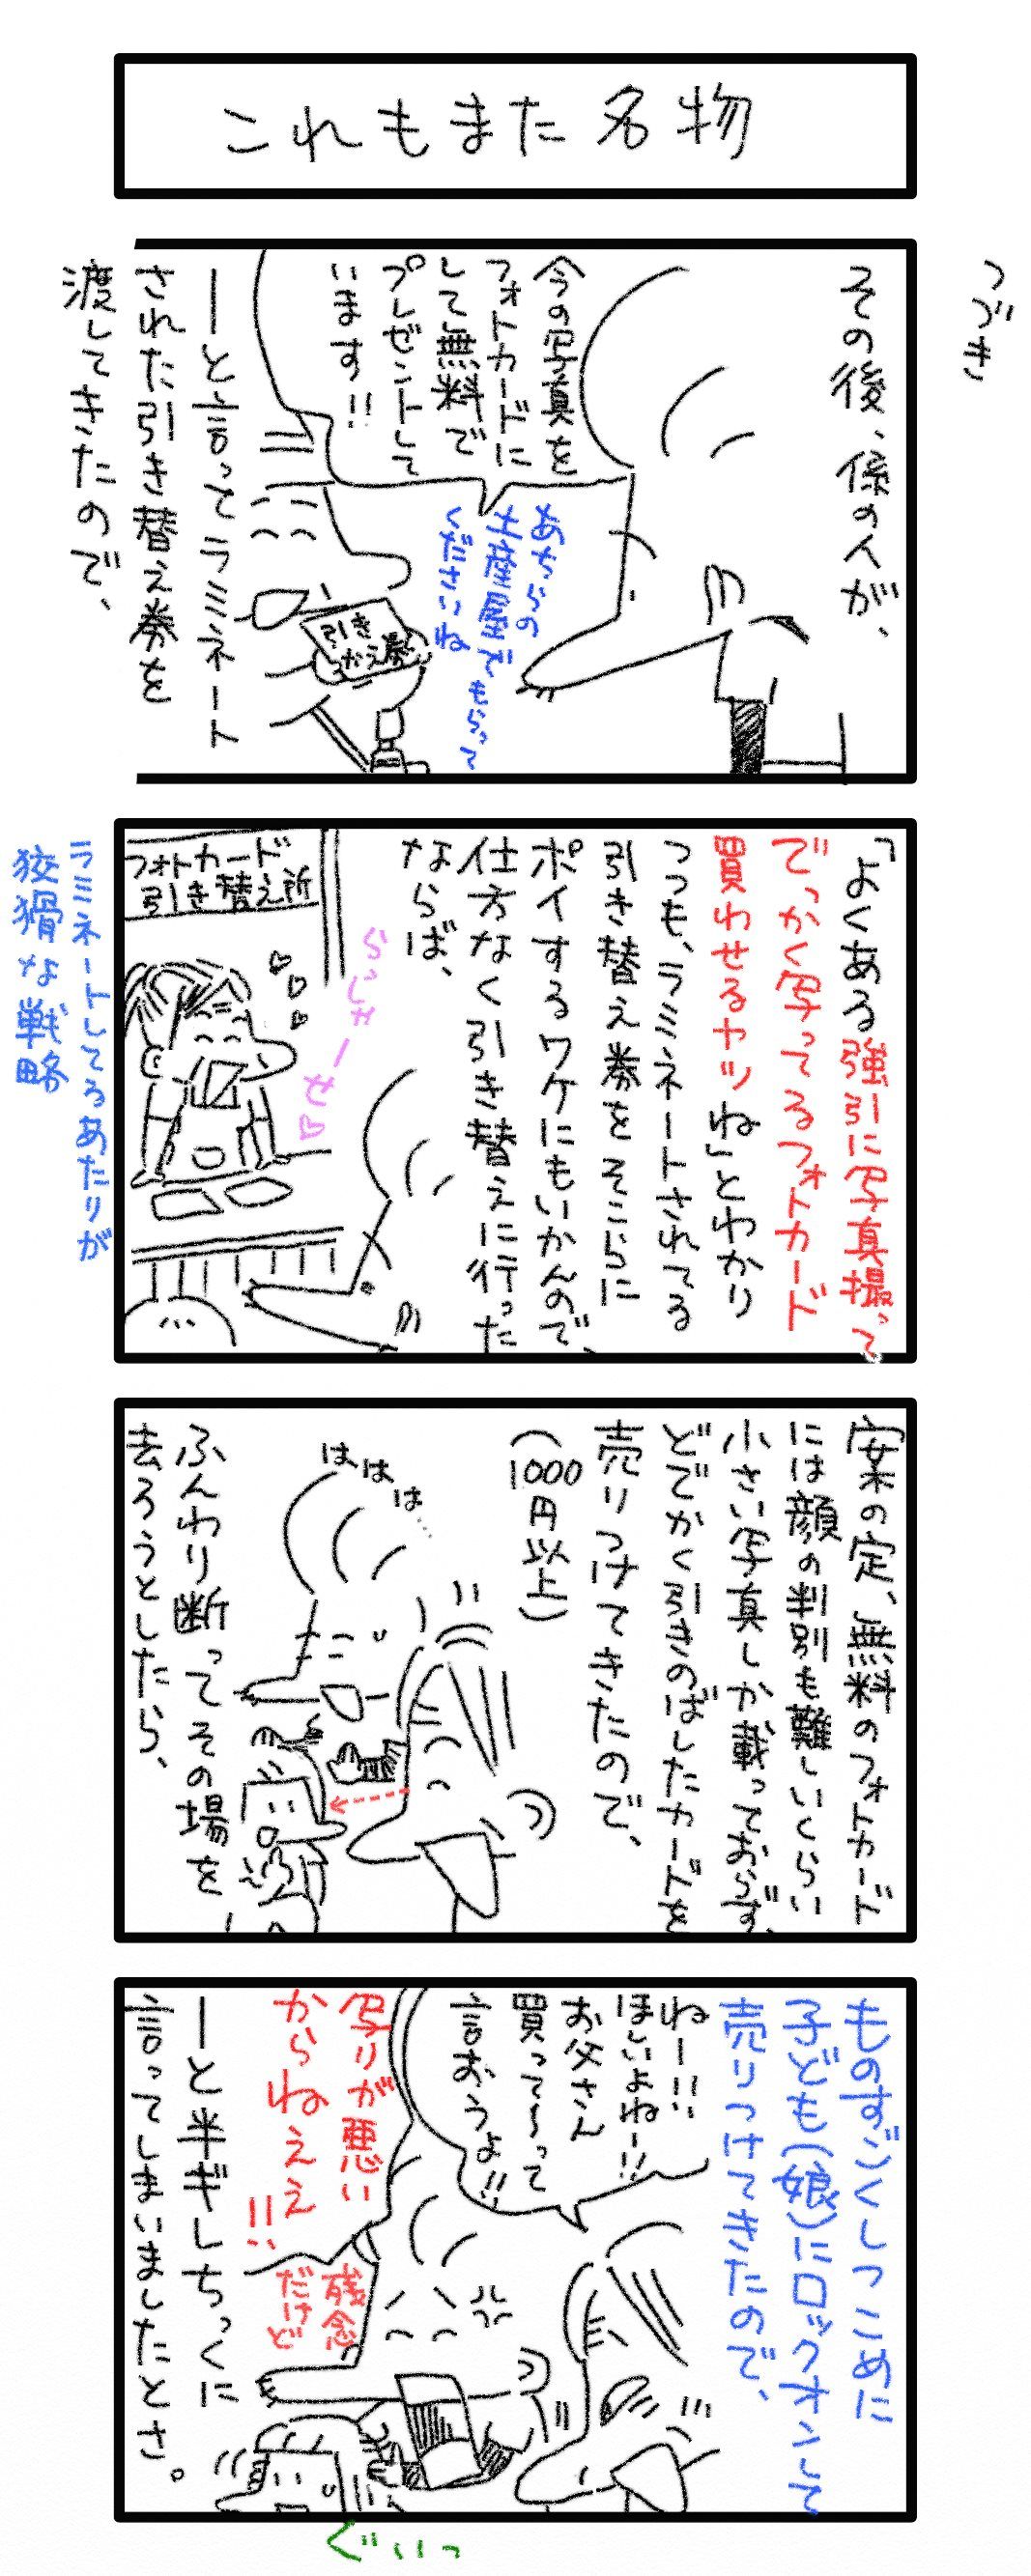 これもまた名物
つづき
その後、係の人が、
今の写真を
フォトカードに
して無料で
プレゼントして
います!!
あちらの
土産屋でもらって
くださいね
引き
かえ券
ーと言ってラミネート
された引き替え券を
渡してきたので、
「よくある強引に写真撮って
でっかく写ってるフォトカード
買わせるヤツね」とわかり
つつも、ラミネートされてる
引き替え券をそこらに
ポイするワケにもいかんので、
仕方なく引き替えに行った
ならば、
らじゃーせ♡
フォトカード
引き替え所
ラミネートしてるあたりが
狡猾な戦略
案の定、無料のフォトカード
には顔の判別も難しいくらい
小さい写真しか載っておらず、
どでかく引きのばしたカードを
売りつけてきたので、
(1000円以上)
ははは…
ふんわり断ってその場を
去ろうとしたら、
ものすごくしつこめに
子ども(娘)にロックオンして
売りつけてきたので、
ねー!!!
ほしいよねー!!
お父さん
買って〜って
言おうよ!!
写りが悪い
からねええ!!
残念
だけど
ーと半ギレちっくに
言ってしまいましたとさ。
ぐいいっ